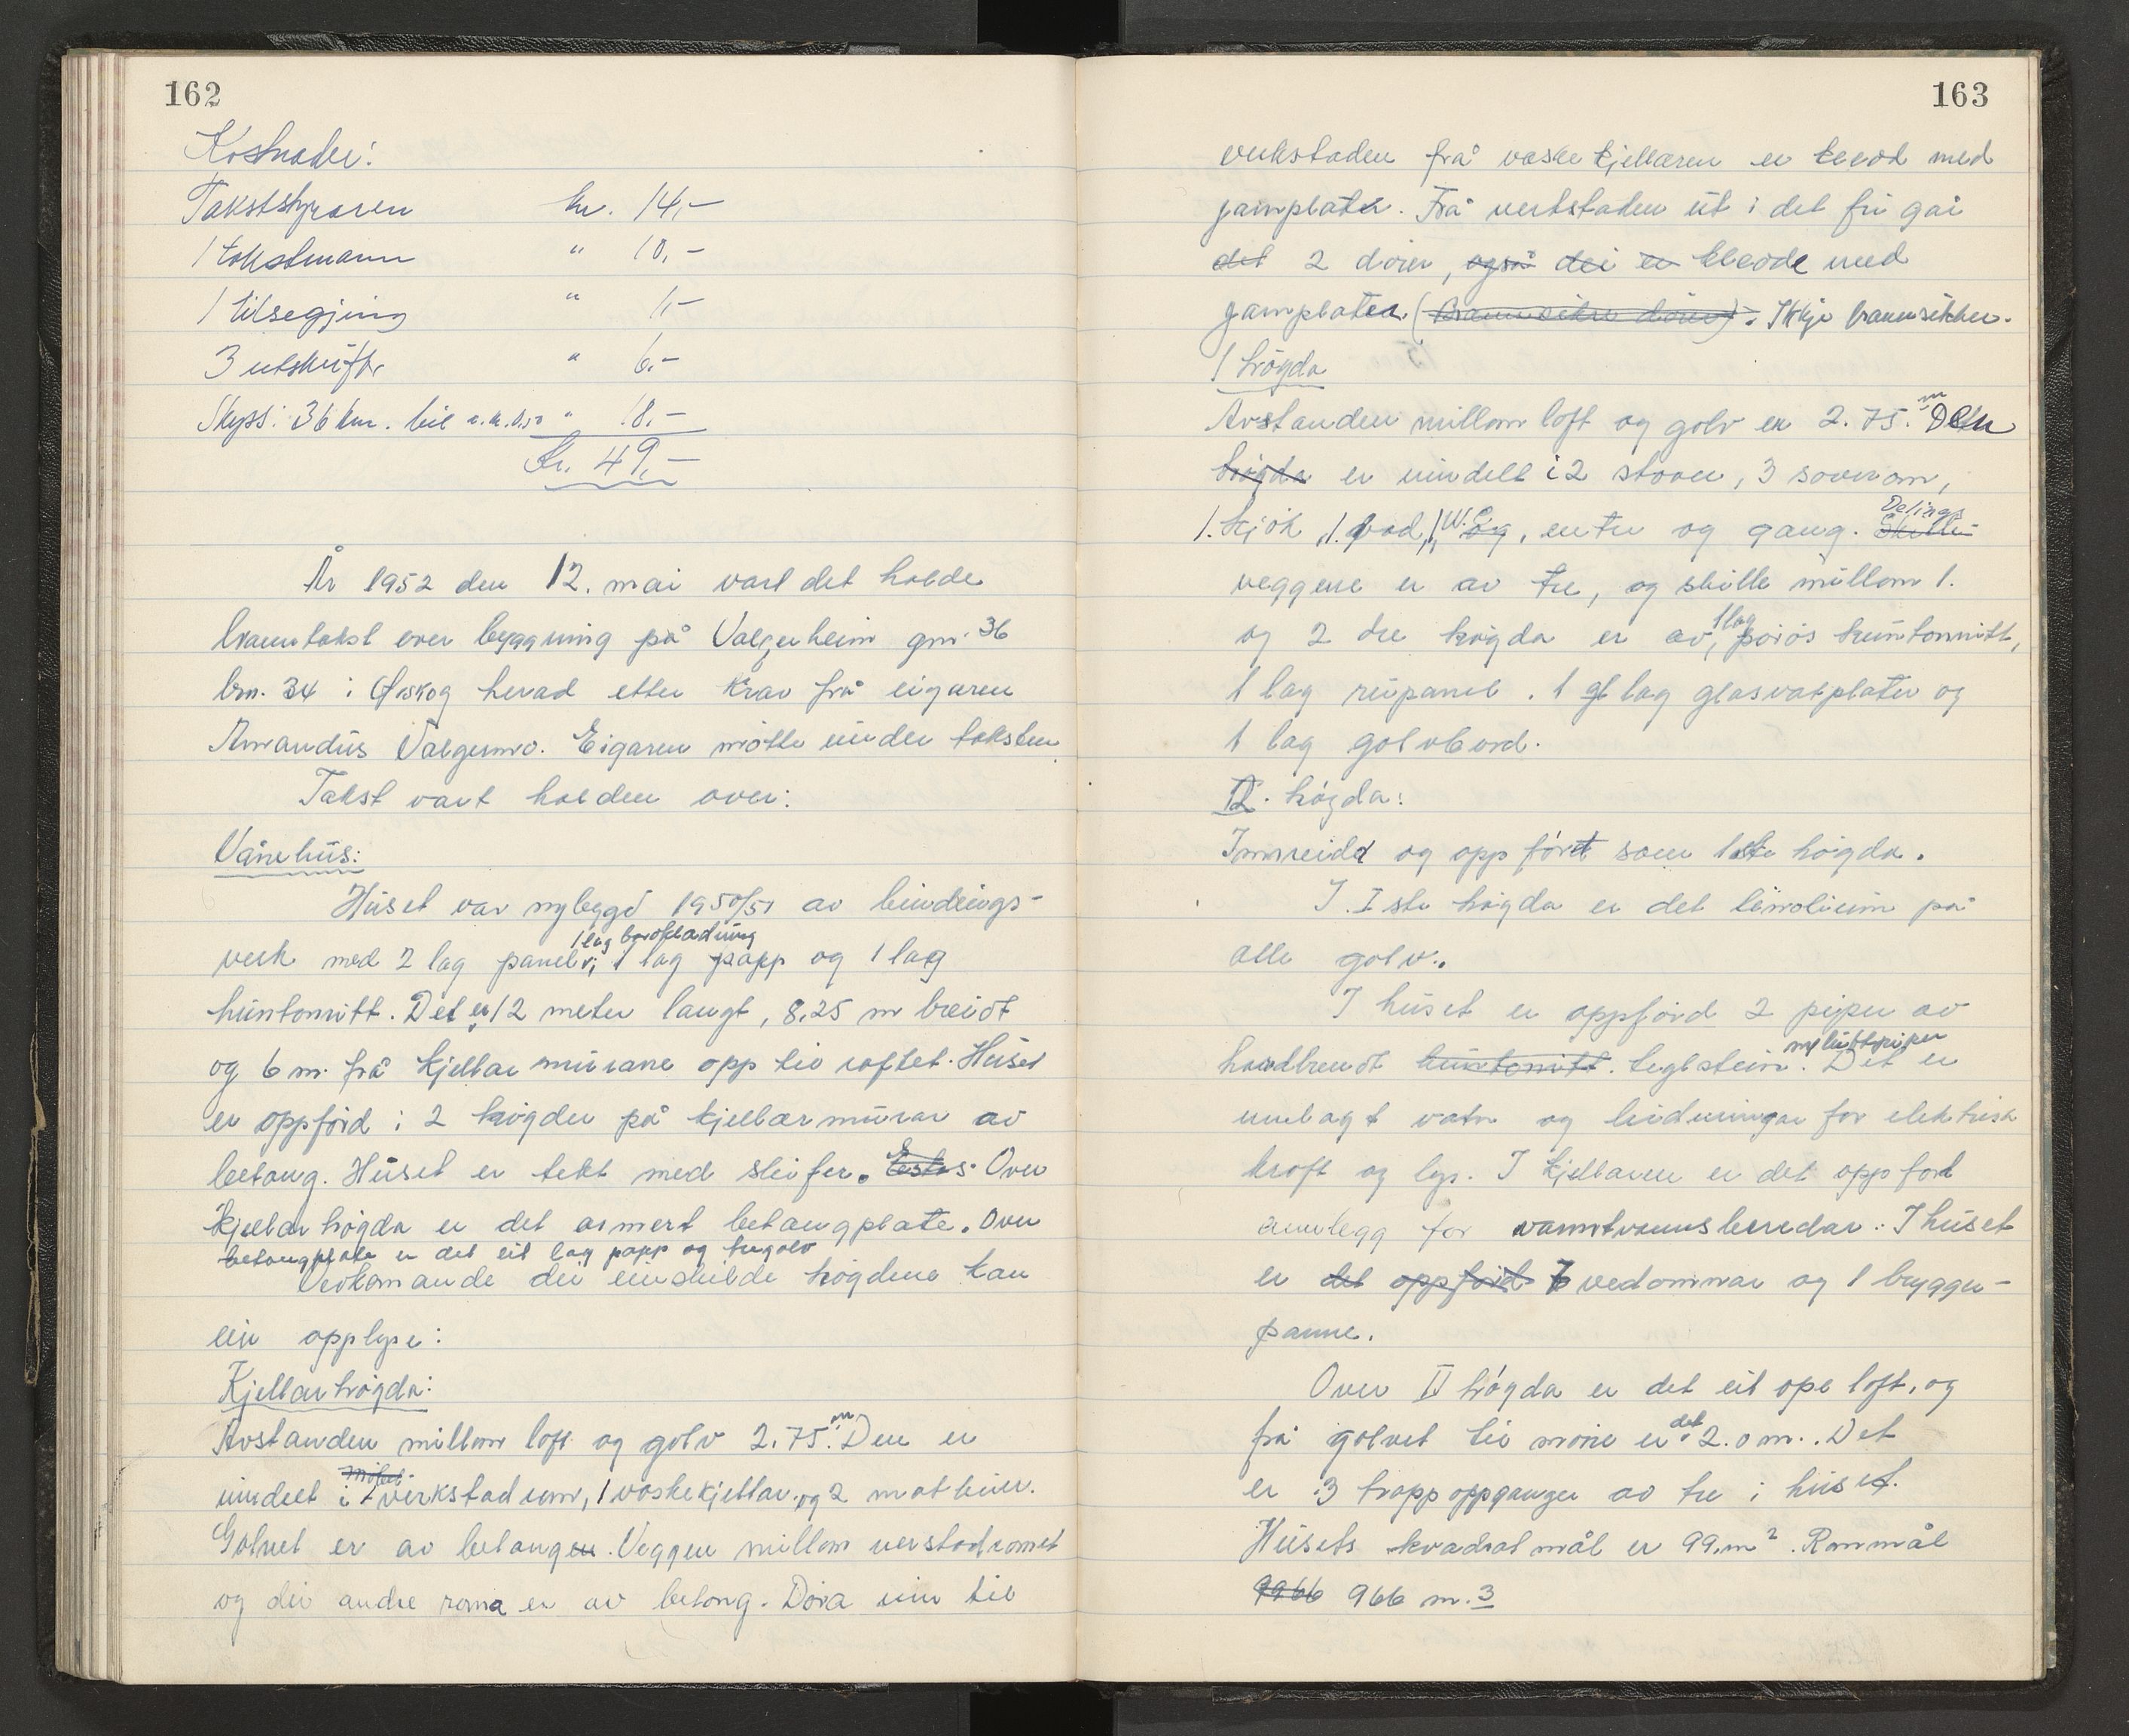 162
Kostnader:
Takststyraren kr. 14,-
1 takstmann " 10,-
1 tilsegjing " 1,-
3 utskrifter " 6.-
Skyss: 36 km. bil a.k. 0,50 " 18.-
Kr. 49,-
År 1952 den 12. mai vart det halde
branntakst over byggning på Valgerheim gnr. 36
brn. 34 i Ørskog herad etter krav frå eigaren
Amandus Valgermo. Eigaren møtte under taksten.
Takst vart halden over:
Vånehus:
Huset var nybygd 1950/51 av bindings-
1 lag
verk med 2 lag panel, 1 lag papp og 1 lag
huntonitt. Det er 12 meter langt, 8,25 m breidt
og 6 m. frå kjellar murane opp til raftet. Huset
er oppförd i 2 högder på kjellarmurar av
betong. Huset er tekt med skifer. Over
kjellar högda er det armert betongplate. Over
betongplata er det eit lag papp og tregolv
Vedkomande dei einskilde högdene kan
ein opplyse:
Kjellarhögda:
Avstanden millom loft og golv 2.75 m. Den er
inndelt i verkstadrom, 1 vaskekjellar og 2 matbuer.
Golvet er av betongen. Veggen millom verstadromet
og dei andre roma er av betong. Döra inn til
163
verkstaden frå vaskekjellaren er kledd med
jarnplater. Frå verkstaden ut i det fri går
det 2 dörer, også dei er kledde med
jarnplater. (Brannsikre dörer). Ikkje brannsikker.
1 högda
Avstanden millom loft og golv er 2.75. m Den
högda er inndelt i 2 stover, 3 soverom,
1. kjök, 1. bad, 1 W.C. og, entre og gang. Delings
Skille-
veggene er av tre, og skille millom 1.
og 2 dre högda er av, 1 lag porös huntonitt,
1 lag rupanel. 1 gl lag glasvatplater og
1 lag golvbord.
II. högda:
Innreidd og oppfört som 1ste högda.
I. I ste högda er det linoleum på
alle golv.
I huset er oppförd 2 piper av
hardbrendt huntonitt. teglstein m/luftpiper. Det er
innlagt vatn og leidningar for elektrisk
kraft og lys. I kjellaren er det oppfört
annlegg for varmtvannsberedar. I huset
er det oppförd 7 vedomnar og 1 brygge-
panne.
Over II högda er det eit ope loft, og
frå golvet til möne er det 2.0 m. Det
er 3 trappoppganger av tre i huset.
Husets kvadrat mål er 99. m². Rommål
9966 966 m. 3